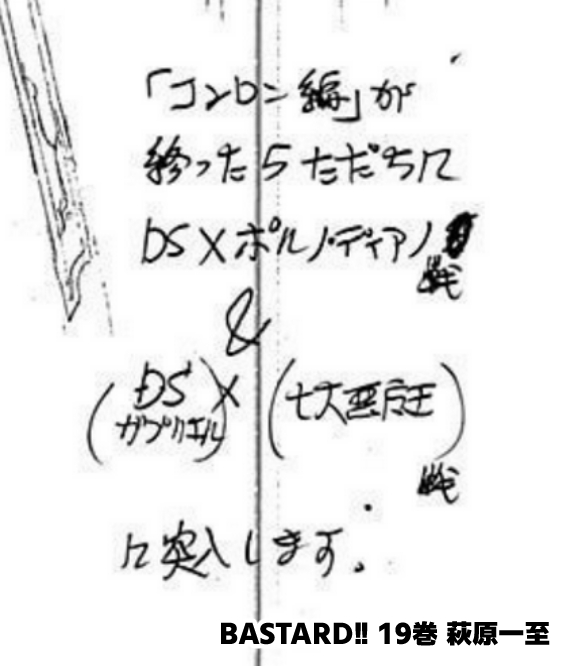 「コンロン編」が
終ったらただちに
DS×ポルノ・ディアノ
戦
&
(DS ガブリエル)×(七大悪魔王)
戦
に突入します。
BASTARD!! 19巻 萩原一至